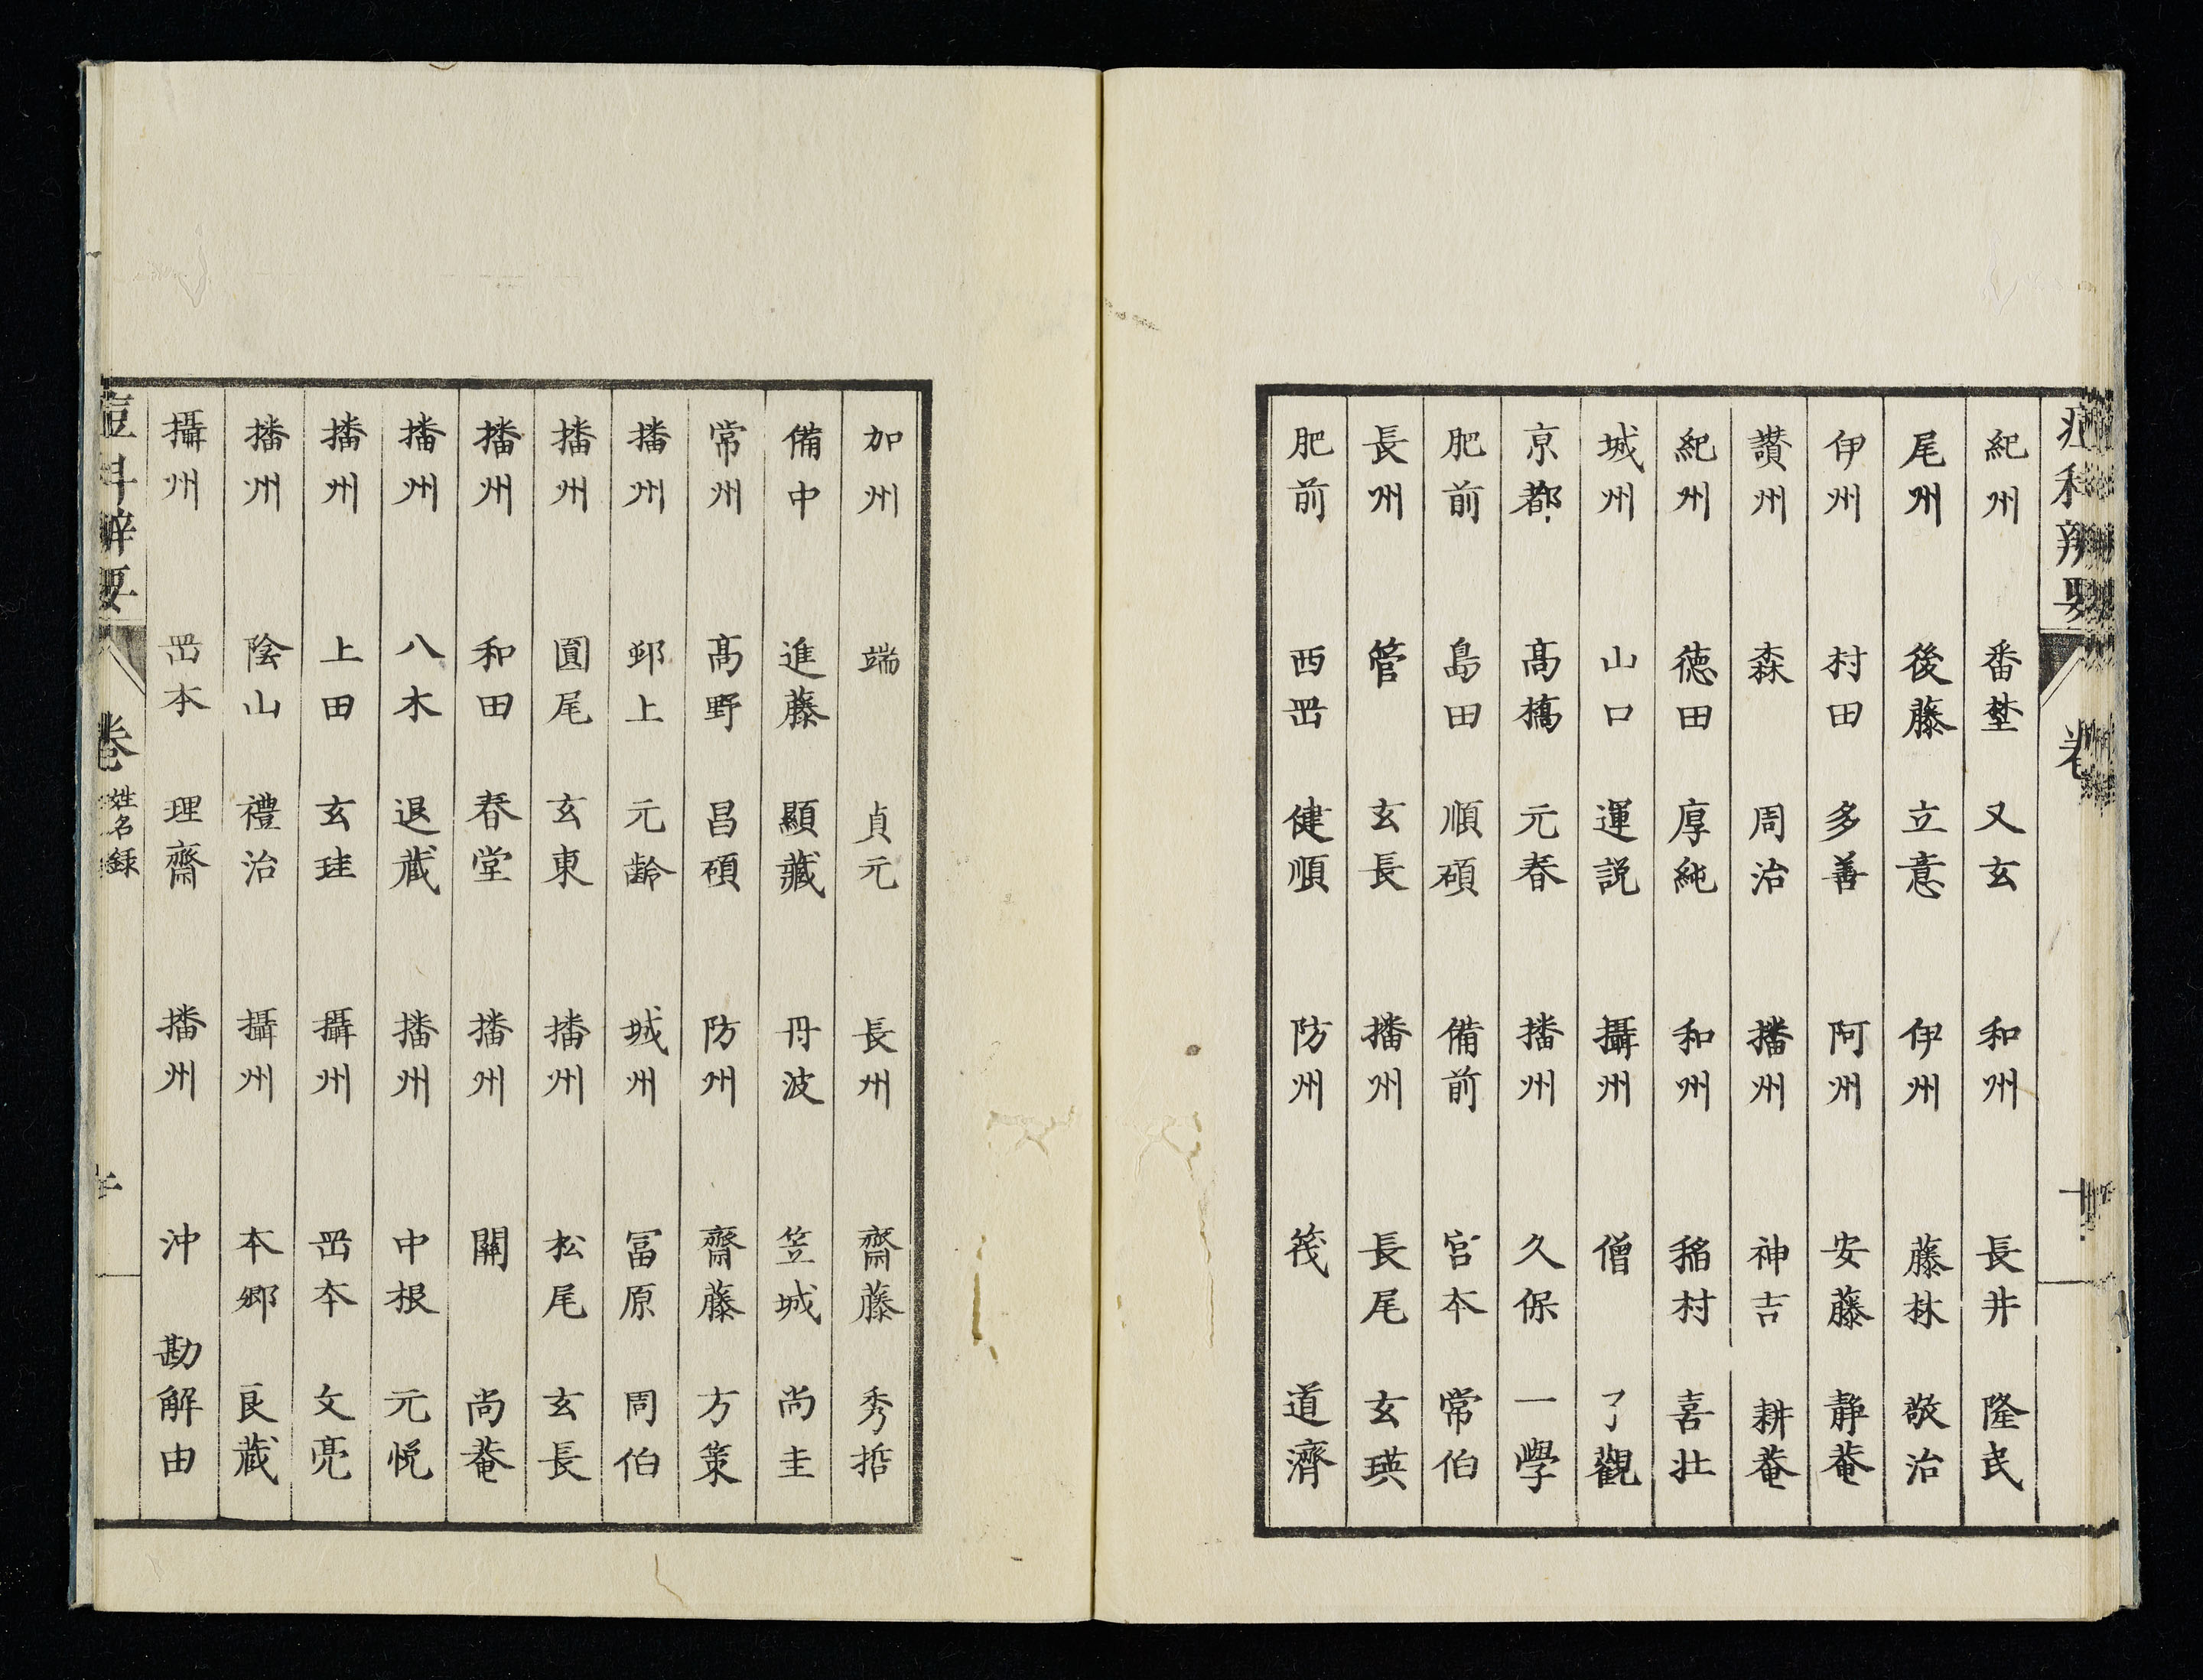 紀州 番埜 又玄 和州 長井 隆民
尾州 後藤 立意 伊州 藤林 敬治
伊州 村田 多善 阿州 安藤 靜菴
讃州 森 周治 播州 神吉 耕菴
紀州 徳田 厚純 和州 稲村 喜壮
城州 山口 運説 攝州 僧 了觀
京都 髙橋 元春 播州 久保 一學
肥前 島田 順碩 備前 宮本 常伯
長州 管 玄長 播州 長尾 玄瑛
肥前 西 健順 防州 筏 道濟
加州 端 貞元 長州 齋藤 秀哲
備中 進藤 顯藏 丹波 笠城 尚圭
常州 髙野 昌碩 防州 齋藤 方策
播州 上 元齢 城州 冨原 周伯
播州 圓尾 玄東 播州 松尾 玄長
播州 和田 春堂 播州 關 尚菴
播州 八木 退蔵 播州 中根 元悦
播州 上田 玄珪 攝州 岡本 文亮
播州 陰山 禮治 攝州 本郷 良蔵
攝州 岡本 理齋 播州 沖 勘解由
痘科辧要 卷 姓名録